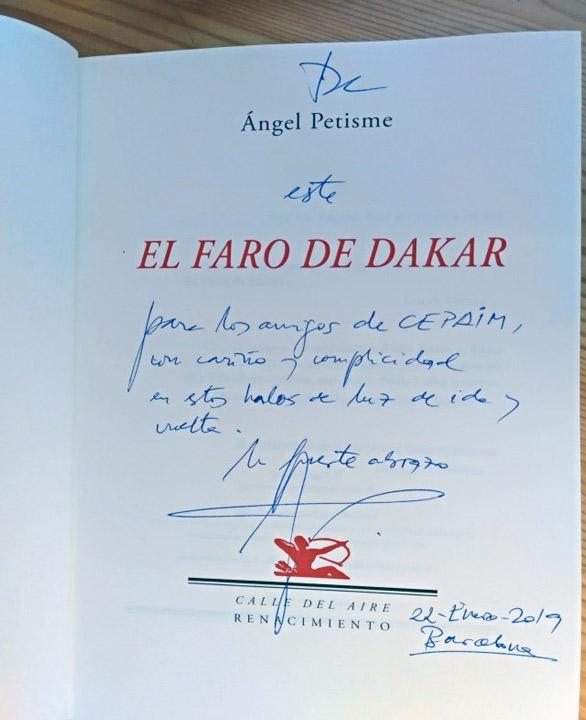 De
Ángel Petisme
este
EL FARO DE DAKAR
para los amigos de CEPAIM,
con cariño y complicidad
en estos halos de luz de ida y
vuelta.
Un fuerte abrazo
CALLE DEL AIRE
RENACIMIENTO
22-Enero-2019
Barcelona